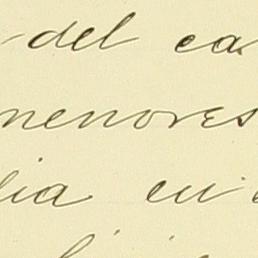 del ca
menores
lia en